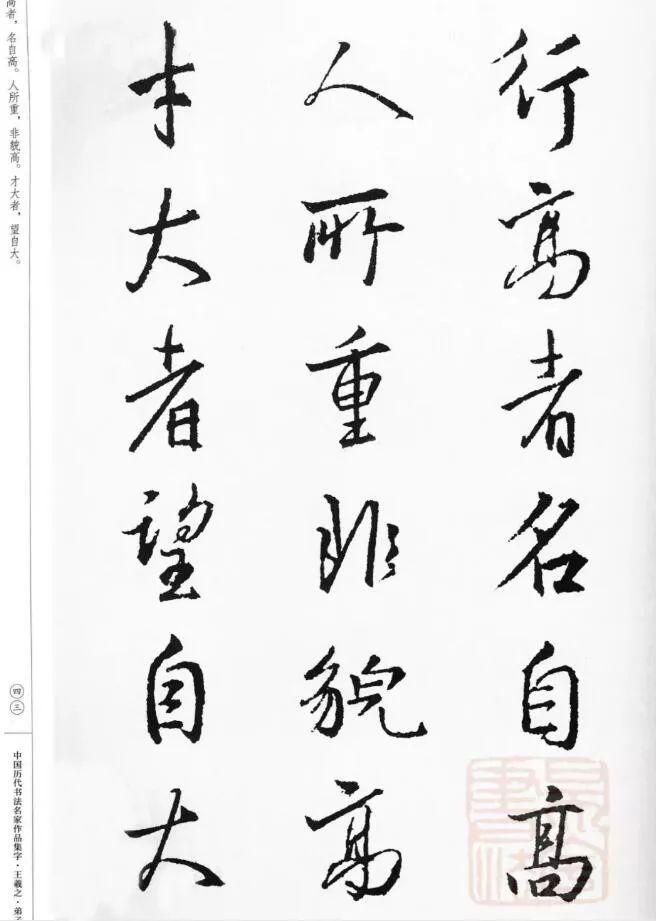 行高者名自高
人所重非貌高
才大者望自大
高者，名自高。人所重，非貌高。才大者，望自大。
四三
中国历代书法名家作品集字·王羲之·弟